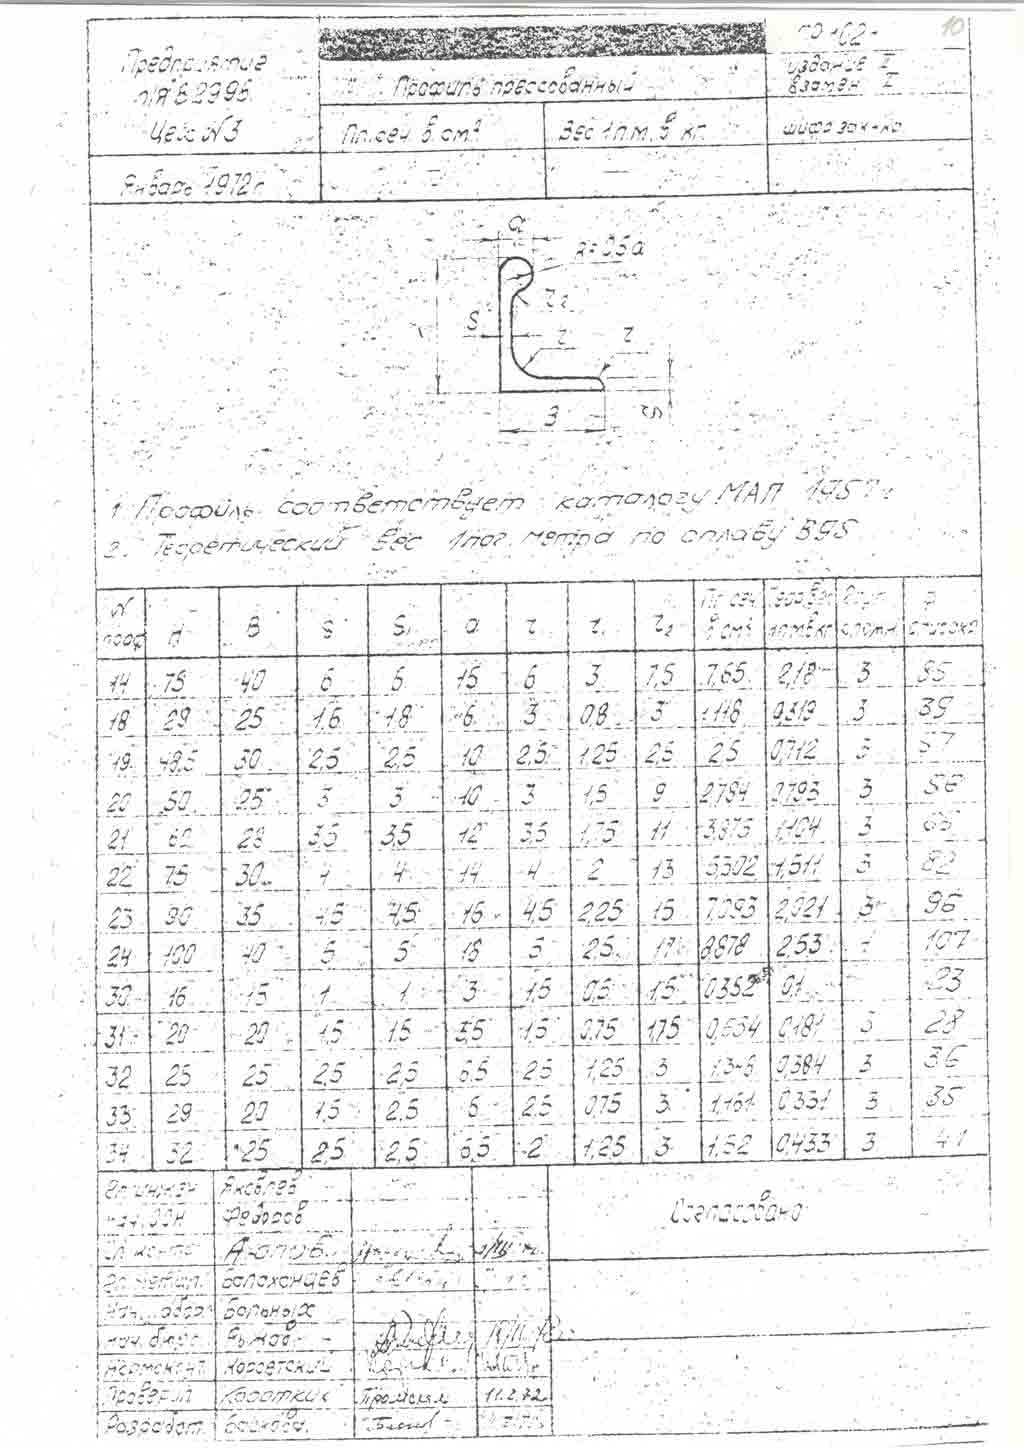 10
Предприятие
п/я В 2996
Цех N3
Январь 1972 г.
Профиль прессованный
Пл. сеч. в см²
Вес 1 п.м. в кг.
издание II
взамен I
шифр зак-ка
a
R=0,5a
r₂
S
r
r
В
1. Профиль соответствует каталогу МАП 1957 г
2. Теоретический вес 1 пог. метра по сплаву В95
N проф H B S S₁ a r r₁ r₂ Пл. сеч. в см² Теор. вес 1 п.м в кг Груп. сложн. ф описано
14 75 40 6 6 15 6 3 7,5 7,65 2,18 3 85
18 29 25 1,6 1,8 6 3 0,8 3 1,118 0,319 3 39
19 48,5 30 2,5 2,5 10 2,5 1,25 2,5 2,5 0,712 3 57
20 50 25 3 3 10 3 1,5 9 2,784 0,793 3 56
21 62 28 3,5 3,5 12 3,5 1,75 11 3,875 1,104 3
22 75 30 4 4 14 4 2 13 5,302 1,511 3 82
23 90 35 4,5 4,5 16 4,5 2,25 15 7,093 2,021 3 96
24 100 40 5 5 18 5 2,5 17 8,878 2,53 107
30 16 15 1 1 3 1,5 0,5 1,5 0,352 0,1 23
31 20 20 1,5 1,5 3,5 1,5 0,75 1,75 0,634 0,181 3 28
32 25 25 2,5 2,5 6,5 2,5 1,25 3 1,346 0,384 3 36
33 29 20 1,5 2,5 6 2,5 0,75 3 1,161 0,331 3 35
34 32 25 2,5 2,5 6,5 2 1,25 3 1,52 0,433 3 41
Гл. инжен Яковлев
Нач. ООК Федоров
Согласовано
Гл. контр
Гл. метал. Балахонцев
Больных
Нач. бюро Рыжов
Нормоконт.
Проверил Короткик 11.2.72
Разработ.